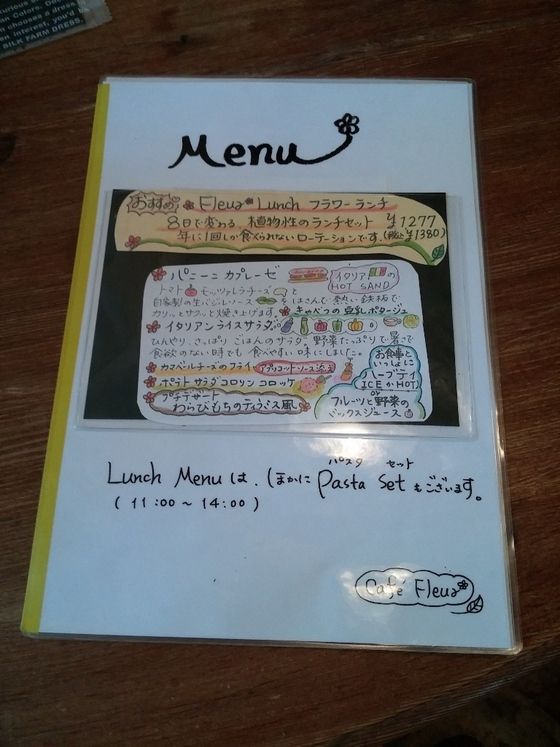 Menu
おすすめ Fleur Lunch フラワーランチ
8日で変わる、植物性のランチセット ¥1277
年に1回しか食べられないローテーションです。(税込¥1380)
パニーニ カプレーゼ
イタリアの
HOT SAND
トマト モッツァレラチーズ と
自家製の生バジルソース をはさんで熱い鉄板で
カリッとサクッと焼き上げます。 キャベツの豆乳ポタージュ
イタリアンライスサラダ
ひんやり、さっぱり ごはんのサラダ。野菜たっぷりで暑くて
食欲のない時でも 食べやすい味にしました。
カマンベールチーズのフライ アプリコットソース添え
ポテトサラダコロッケ
プチデザート
わらびもちのティラミス風
お食事と
いっしょに
ハーブティ
ICE or HOT
or
フルーツと野菜の
ミックスジュース
Lunch Menu は、ほかに Pasta パスタ Set セット もございます。
(11:00~14:00)
Café Fleur
SILK FARM DRESS.